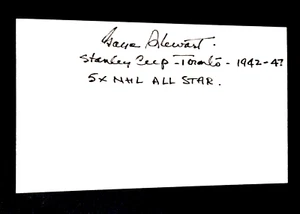 Gaye Stewart.
Stanley Cup - Toronto - 1942-47
5X NHL ALL STAR.